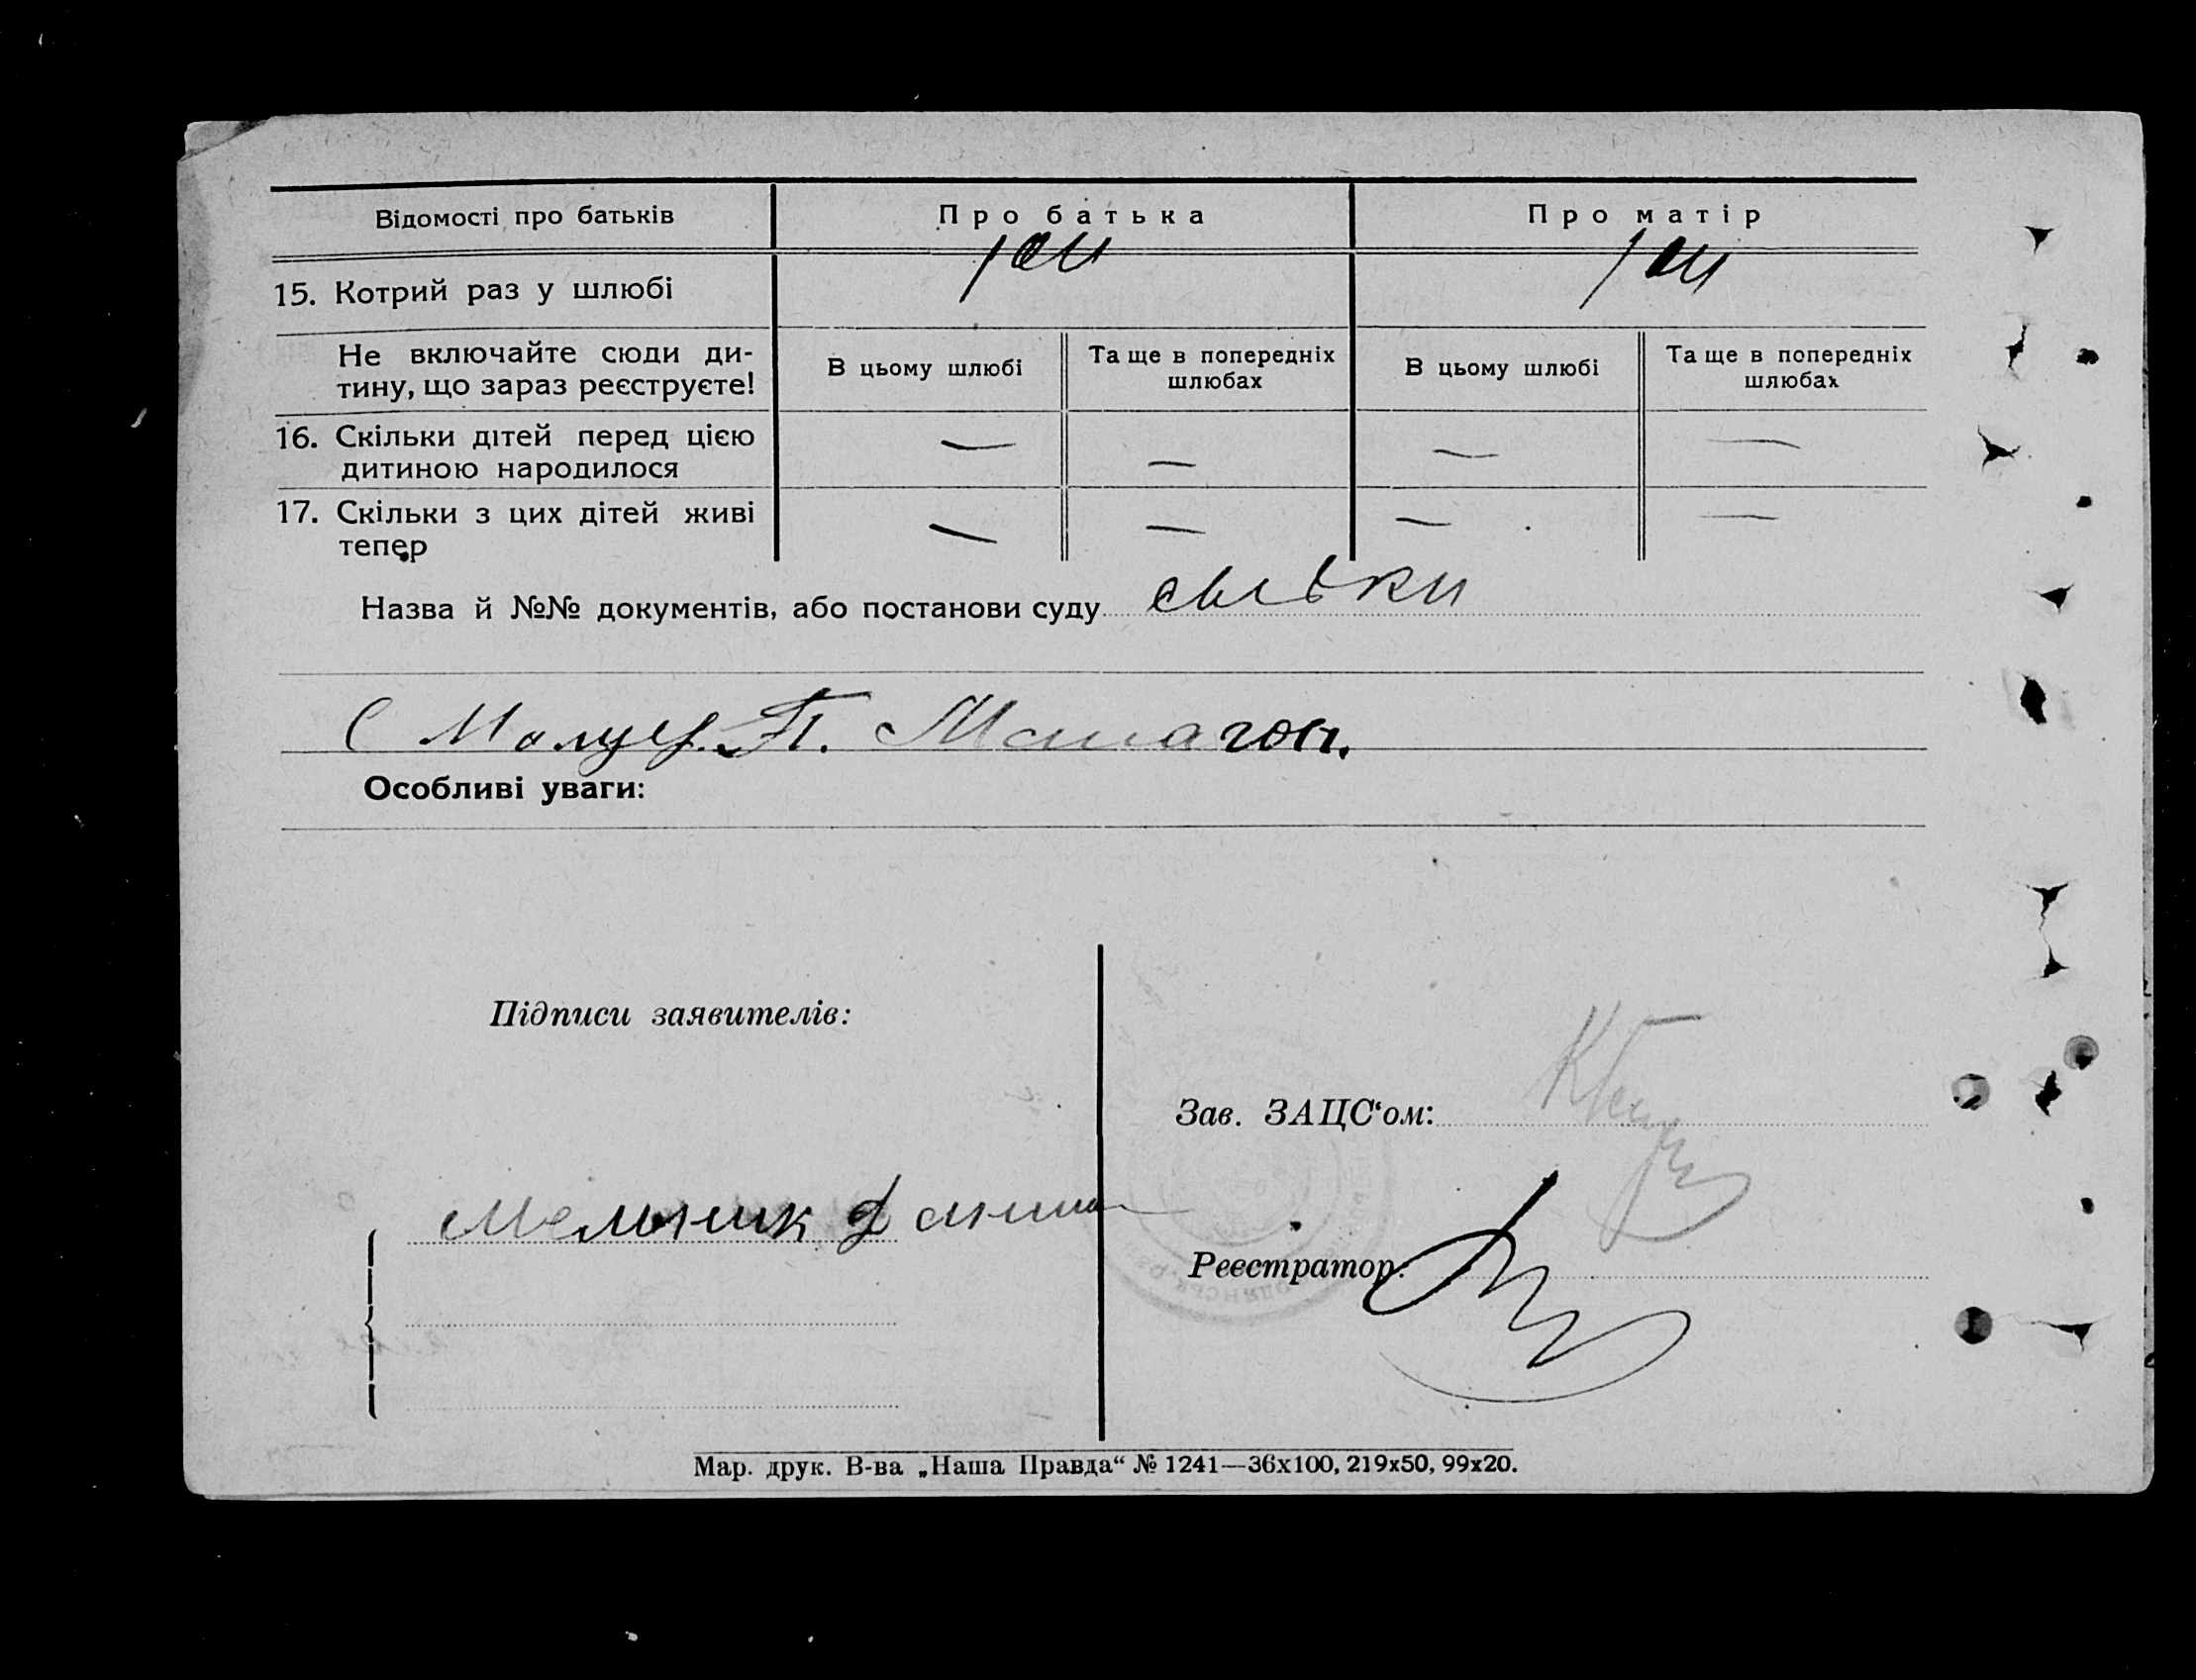 Відомості про батьків
Про батька
Про матір
15. Котрий раз у шлюбі
1ой
1ой
Не включайте сюди ди-
тину, що зараз реєструєте!
В цьому шлюбі
Та ще в попередніх
шлюбах
В цьому шлюбі
Та ще в попередніх
шлюбах
16. Скільки дітей перед цією
дитиною народилося
— — — —
17. Скільки з цих дітей живі
тепер
— — — —
Назва й №№ документів, або постанови суду свідки
П.
Особливі уваги:
Підписи заявителів:
Зав. ЗАЦС‘ом:
Мельник
Реєстратор:
Мар. друк. В-ва „Наша Правда“ № 1241—36х100, 219х50, 99х20.